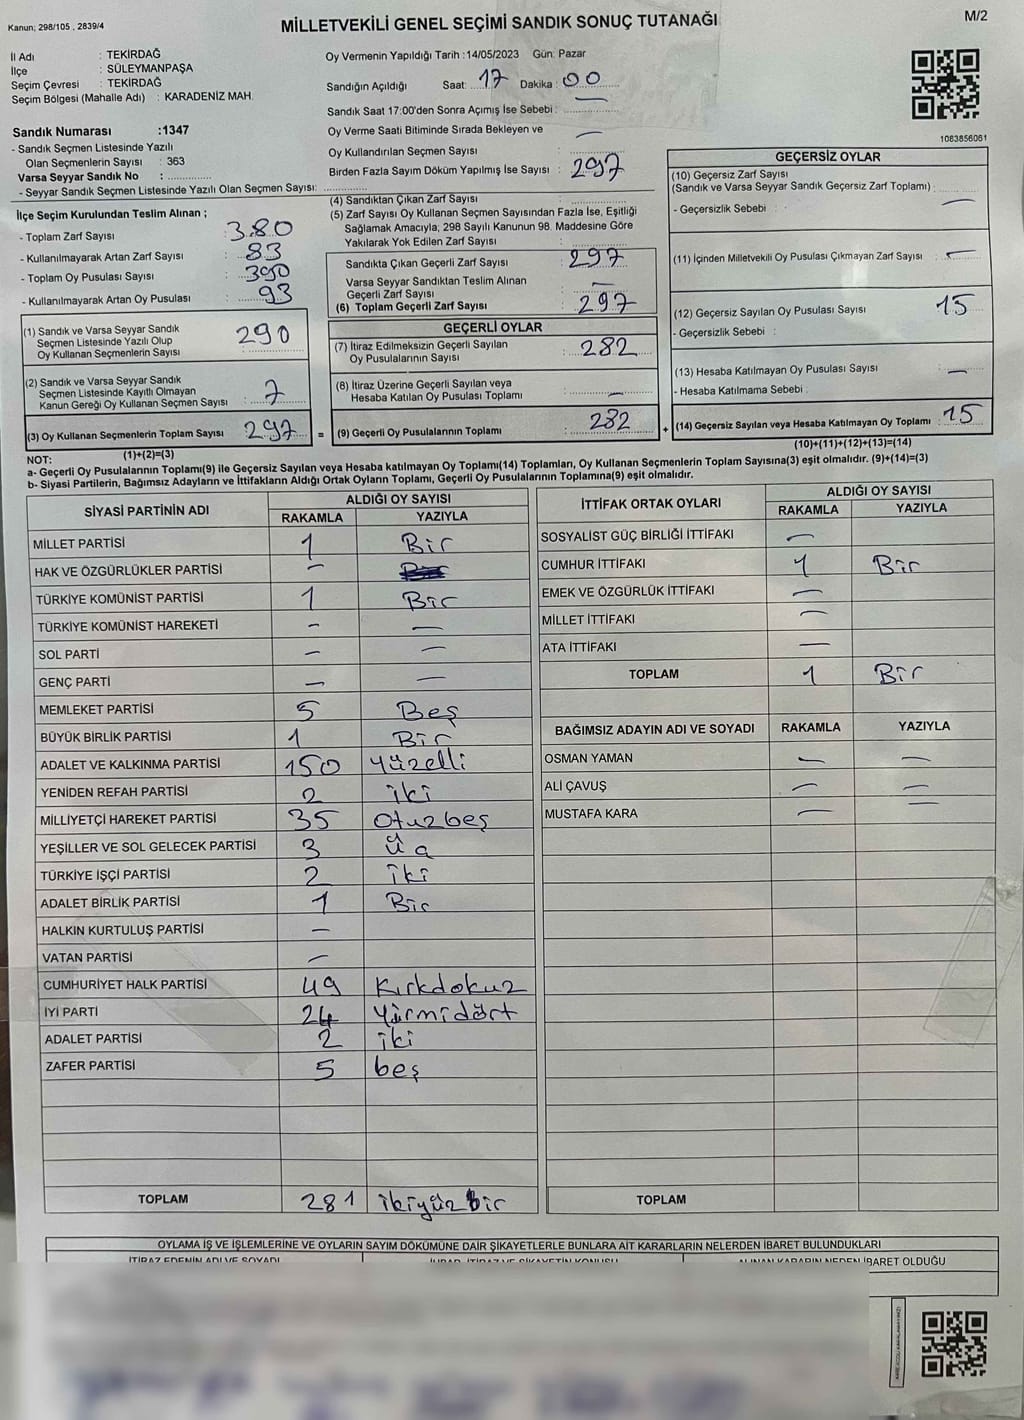 Kanun; 298/105 , 2839/4
MİLLETVEKİLİ GENEL SEÇİMİ SANDIK SONUÇ TUTANAĞI
M/2
İl Adı : TEKİRDAĞ
İlçe : SÜLEYMANPAŞA
Seçim Çevresi : TEKİRDAĞ
Seçim Bölgesi (Mahalle Adı) : KARADENİZ MAH.
Sandık Numarası :1347
- Sandık Seçmen Listesinde Yazılı
Olan Seçmenlerin Sayısı : 363
Varsa Seyyar Sandık No :
- Seyyar Sandık Seçmen Listesinde Yazılı Olan Seçmen Sayısı:
Oy Vermenin Yapıldığı Tarih :14/05/2023 Gün: Pazar
Sandığın Açıldığı Saat: 17 Dakika : 00
Sandık Saat 17:00'den Sonra Açımış İse Sebebi : —
Oy Verme Saati Bitiminde Sırada Bekleyen ve
Oy Kullandırılan Seçmen Sayısı —
Birden Fazla Sayım Döküm Yapılmış İse Sayısı : 297
1083856061
İlçe Seçim Kurulundan Teslim Alınan ;
- Toplam Zarf Sayısı : 380
- Kullanılmayarak Artan Zarf Sayısı : 83
- Toplam Oy Pusulası Sayısı : 390
- Kullanılmayarak Artan Oy Pusulası : 93
(1) Sandık ve Varsa Seyyar Sandık
Seçmen Listesinde Yazılı Olup
Oy Kullanan Seçmenlerin Sayısı : 290
(2) Sandık ve Varsa Seyyar Sandık
Seçmen Listesinde Kayıtlı Olmayan
Kanun Gereği Oy Kullanan Seçmen Sayısı : 7
(3) Oy Kullanan Seçmenlerin Toplam Sayısı 297 =
(1)+(2)=(3)
(4) Sandıktan Çıkan Zarf Sayısı :
(5) Zarf Sayısı Oy Kullanan Seçmen Sayısından Fazla İse, Eşitliği
Sağlamak Amacıyla; 298 Sayılı Kanunun 98. Maddesine Göre
Yakılarak Yok Edilen Zarf Sayısı :
Sandıkta Çıkan Geçerli Zarf Sayısı : 297
Varsa Seyyar Sandıktan Teslim Alınan
Geçerli Zarf Sayısı : —
(6) Toplam Geçerli Zarf Sayısı : 297
GEÇERLİ OYLAR
(7) İtiraz Edilmeksizin Geçerli Sayılan
Oy Pusulalarının Sayısı : 282
(8) İtiraz Üzerine Geçerli Sayılan veya
Hesaba Katılan Oy Pusulası Toplamı : —
(9) Geçerli Oy Pusulalarının Toplamı : 282 +
GEÇERSİZ OYLAR
(10) Geçersiz Zarf Sayısı
(Sandık ve Varsa Seyyar Sandık Geçersiz Zarf Toplamı) : —
- Geçersizlik Sebebi :
(11) İçinden Milletvekili Oy Pusulası Çıkmayan Zarf Sayısı : —
(12) Geçersiz Sayılan Oy Pusulası Sayısı : 15
- Geçersizlik Sebebi :
(13) Hesaba Katılmayan Oy Pusulası Sayısı : —
- Hesaba Katılmama Sebebi :
(14) Geçersiz Sayılan veya Hesaba Katılmayan Oy Toplamı : 15
(10)+(11)+(12)+(13)=(14)
NOT:
a- Geçerli Oy Pusulalarının Toplamı(9) ile Geçersiz Sayılan veya Hesaba katılmayan Oy Toplamı(14) Toplamları, Oy Kullanan Seçmenlerin Toplam Sayısına(3) eşit olmalıdır. (9)+(14)=(3)
b- Siyasi Partilerin, Bağımsız Adayların ve İttifakların Aldığı Ortak Oyların Toplamı, Geçerli Oy Pusulalarının Toplamına(9) eşit olmalıdır.
SİYASİ PARTİNİN ADI ALDIĞI OY SAYISI
RAKAMLA YAZIYLA
MİLLET PARTİSİ 1 Bir
HAK VE ÖZGÜRLÜKLER PARTİSİ —
TÜRKİYE KOMÜNİST PARTİSİ 1 Bir
TÜRKİYE KOMÜNİST HAREKETİ — —
SOL PARTİ — —
GENÇ PARTİ — —
MEMLEKET PARTİSİ 5 Beş
BÜYÜK BİRLİK PARTİSİ 1 Bir
ADALET VE KALKINMA PARTİSİ 150 yüzelli
YENİDEN REFAH PARTİSİ 2 iki
MİLLİYETÇİ HAREKET PARTİSİ 35 Otuzbeş
YEŞİLLER VE SOL GELECEK PARTİSİ 3 üç
TÜRKİYE İŞÇİ PARTİSİ 2 iki
ADALET BİRLİK PARTİSİ 1 Bir
HALKIN KURTULUŞ PARTİSİ —
VATAN PARTİSİ —
CUMHURİYET HALK PARTİSİ 49 Kırkdokuz
İYİ PARTİ 24 Yirmidört
ADALET PARTİSİ 2 iki
ZAFER PARTİSİ 5 beş
TOPLAM 281 ikiyüzbir
İTTİFAK ORTAK OYLARI ALDIĞI OY SAYISI
RAKAMLA YAZIYLA
SOSYALİST GÜÇ BİRLİĞİ İTTİFAKI —
CUMHUR İTTİFAKI 1 Bir
EMEK VE ÖZGÜRLÜK İTTİFAKI —
MİLLET İTTİFAKI —
ATA İTTİFAKI —
TOPLAM 1 Bir
BAĞIMSIZ ADAYIN ADI VE SOYADI RAKAMLA YAZIYLA
OSMAN YAMAN — —
ALİ ÇAVUŞ — —
MUSTAFA KARA — —
TOPLAM
OYLAMA İŞ VE İŞLEMLERİNE VE OYLARIN SAYIM DÖKÜMÜNE DAİR ŞİKAYETLERLE BUNLARA AİT KARARLARIN NELERDEN İBARET BULUNDUKLARI
İTİRAZ EDENİN ADI VE SOYADI
İBARET OLDUĞU